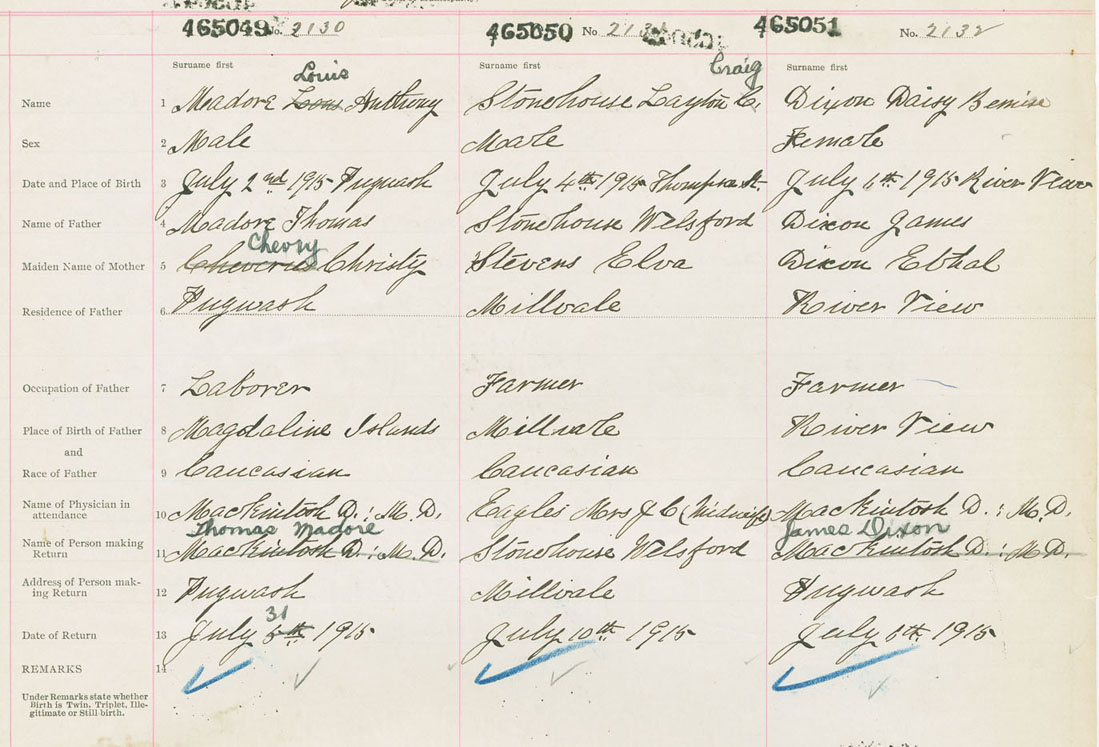 465049 No. 2130 465050 No. 213 465051 No. 2132
Surname first Surname first Surname first
Louis Craig
Name 1 Madore Anthony Stonehouse Layton C. Dixon Daisy Bernice
Sex 2 Male Male Female
Date and Place of Birth 3 July 2nd 1915 Pugwash July 4th 1915 Thompson St. July 6th 1915 River View
Name of Father 4 Madore Thomas Stonehouse Welsford Dixon James
Chevry
Maiden Name of Mother 5 Cheverie Christy Stevens Elva Dixon Ethal
Residence of Father 6 Pugwash Millvale River View
Occupation of Father 7 Laborer Farmer Farmer
Place of Birth of Father 8 Magdaline Islands Millvale River View
and
Race of Father 9 Caucasian Caucasian Caucasian
Name of Physician in
attendance 10 MacKintosh D. : M.D. Eagles Mrs J C (Midwife) MacKintosh D. : M.D.
Thomas Madore James Dixon
Name of Person making
Return 11 MacKintosh D. : M.D. Stonehouse Welsford MacKintosh D. : M.D.
Address of Person mak-
ing Return 12 Pugwash Millvale Pugwash
31
Date of Return 13 July 1915 July 10th 1915 July 8th 1915
REMARKS 14
Under Remarks state whether
Birth is Twin, Triplet, Ille-
gitimate or Still-birth.